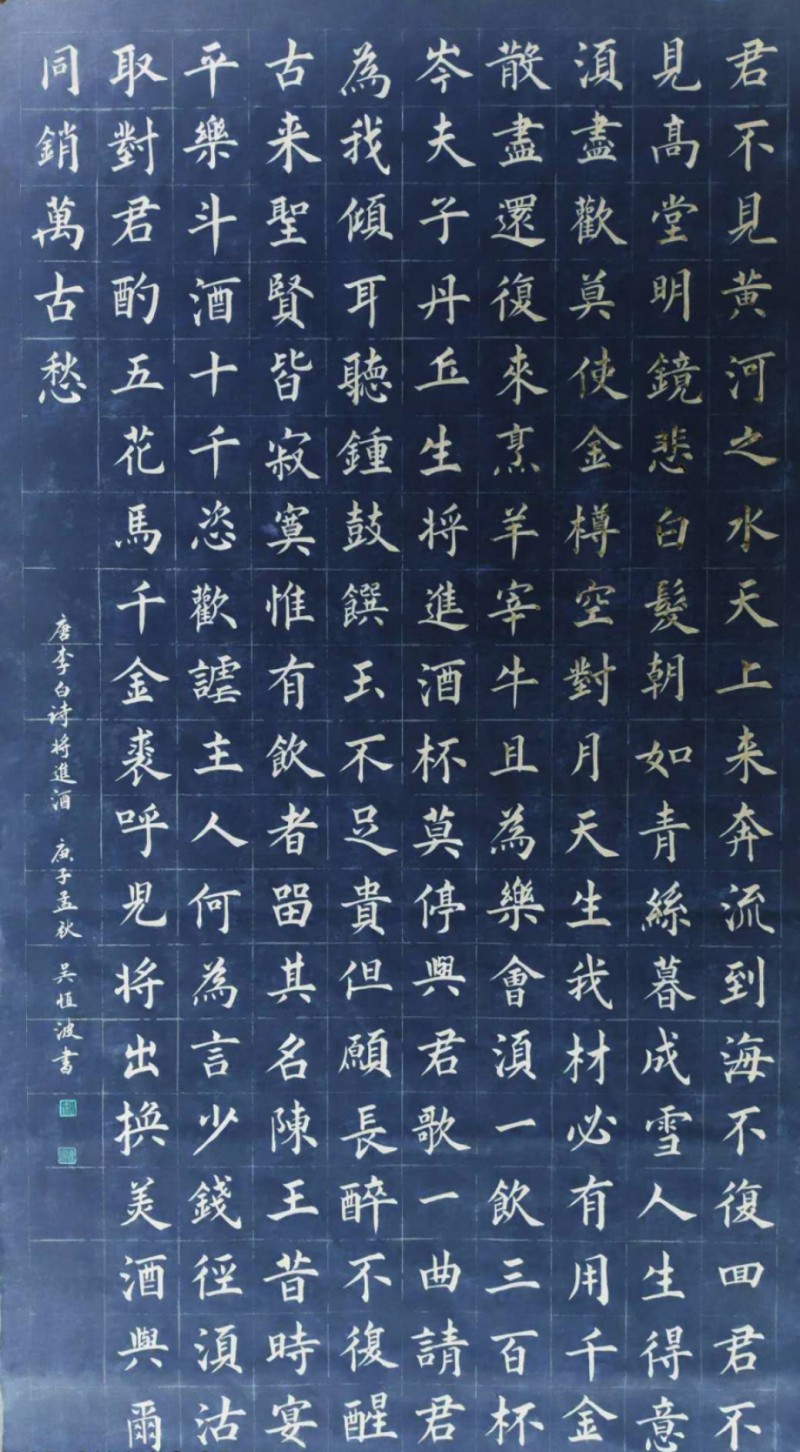 君不見黄河之水天上来奔流到海不復囬君不
見高堂明鏡悲白髮朝如青絲暮成雪人生得意
須盡歡莫使金樽空對月天生我材必有用千金
散盡還復來烹羊宰牛且為樂會須一飲三百杯
岑夫子丹丘生将進酒杯莫停與君歌一曲請君
為我傾耳聽鍾鼓饌玉不足貴但願長醉不復醒
古来聖賢皆寂寞惟有飲者留其名陳王昔時宴
平樂斗酒十千恣歡謔主人何為言少錢徑須沽
取對君酌五花馬千金裘呼児将出換美酒與爾
同銷萬古愁
唐李白诗将進酒 庚子孟秋 吴恒波書